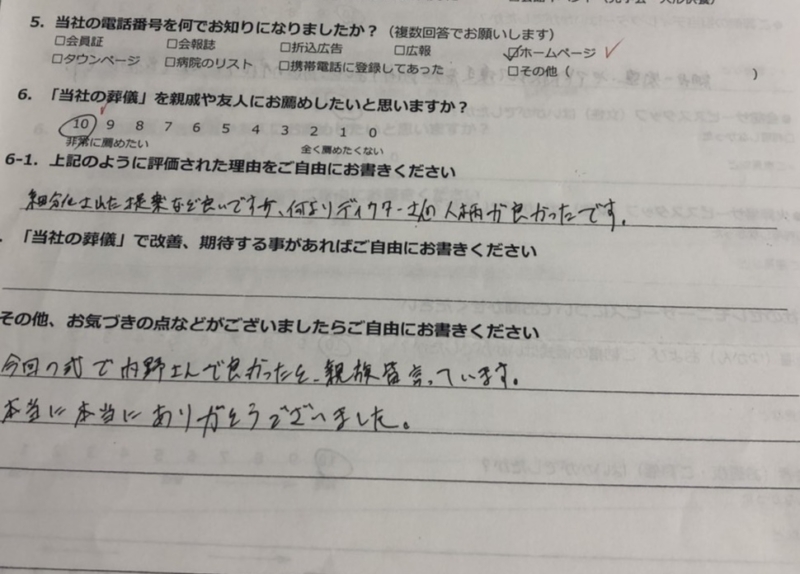 5. 当社の電話番号を何でお知りになりましたか？（複数回答でお願いします）
□会員証 □会報誌 □折込広告 □広報 ☑ホームページ ✓
□タウンページ □病院のリスト □携帯電話に登録してあった □その他（ ）
6. 「当社の葬儀」を親戚や友人にお薦めしたいと思いますか？
10 9 8 7 6 5 4 3 2 1 0
非常に薦めたい 全く薦めたくない
6-1. 上記のように評価された理由をご自由にお書きください
細分化された提案など良いですが、何よりディクターさんの人柄が良かったです。
. 「当社の葬儀」で改善、期待する事があればご自由にお書きください
その他、お気づきの点などがございましたらご自由にお書きください
今回の式で内野さんで良かったと、親族皆言っています。
本当に本当にありがとうございました。